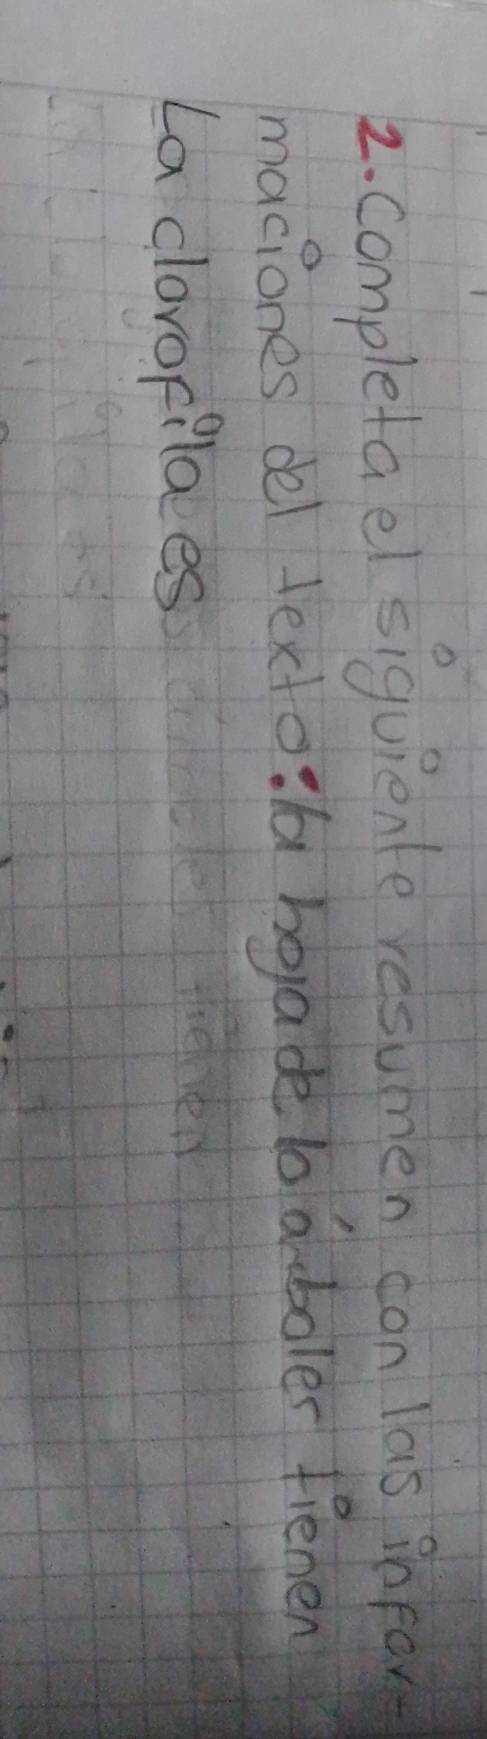 2. Completa el siguiente resumen con las infor-
maciones del texto: la hoja de lo árboler tienen
La clorofila es